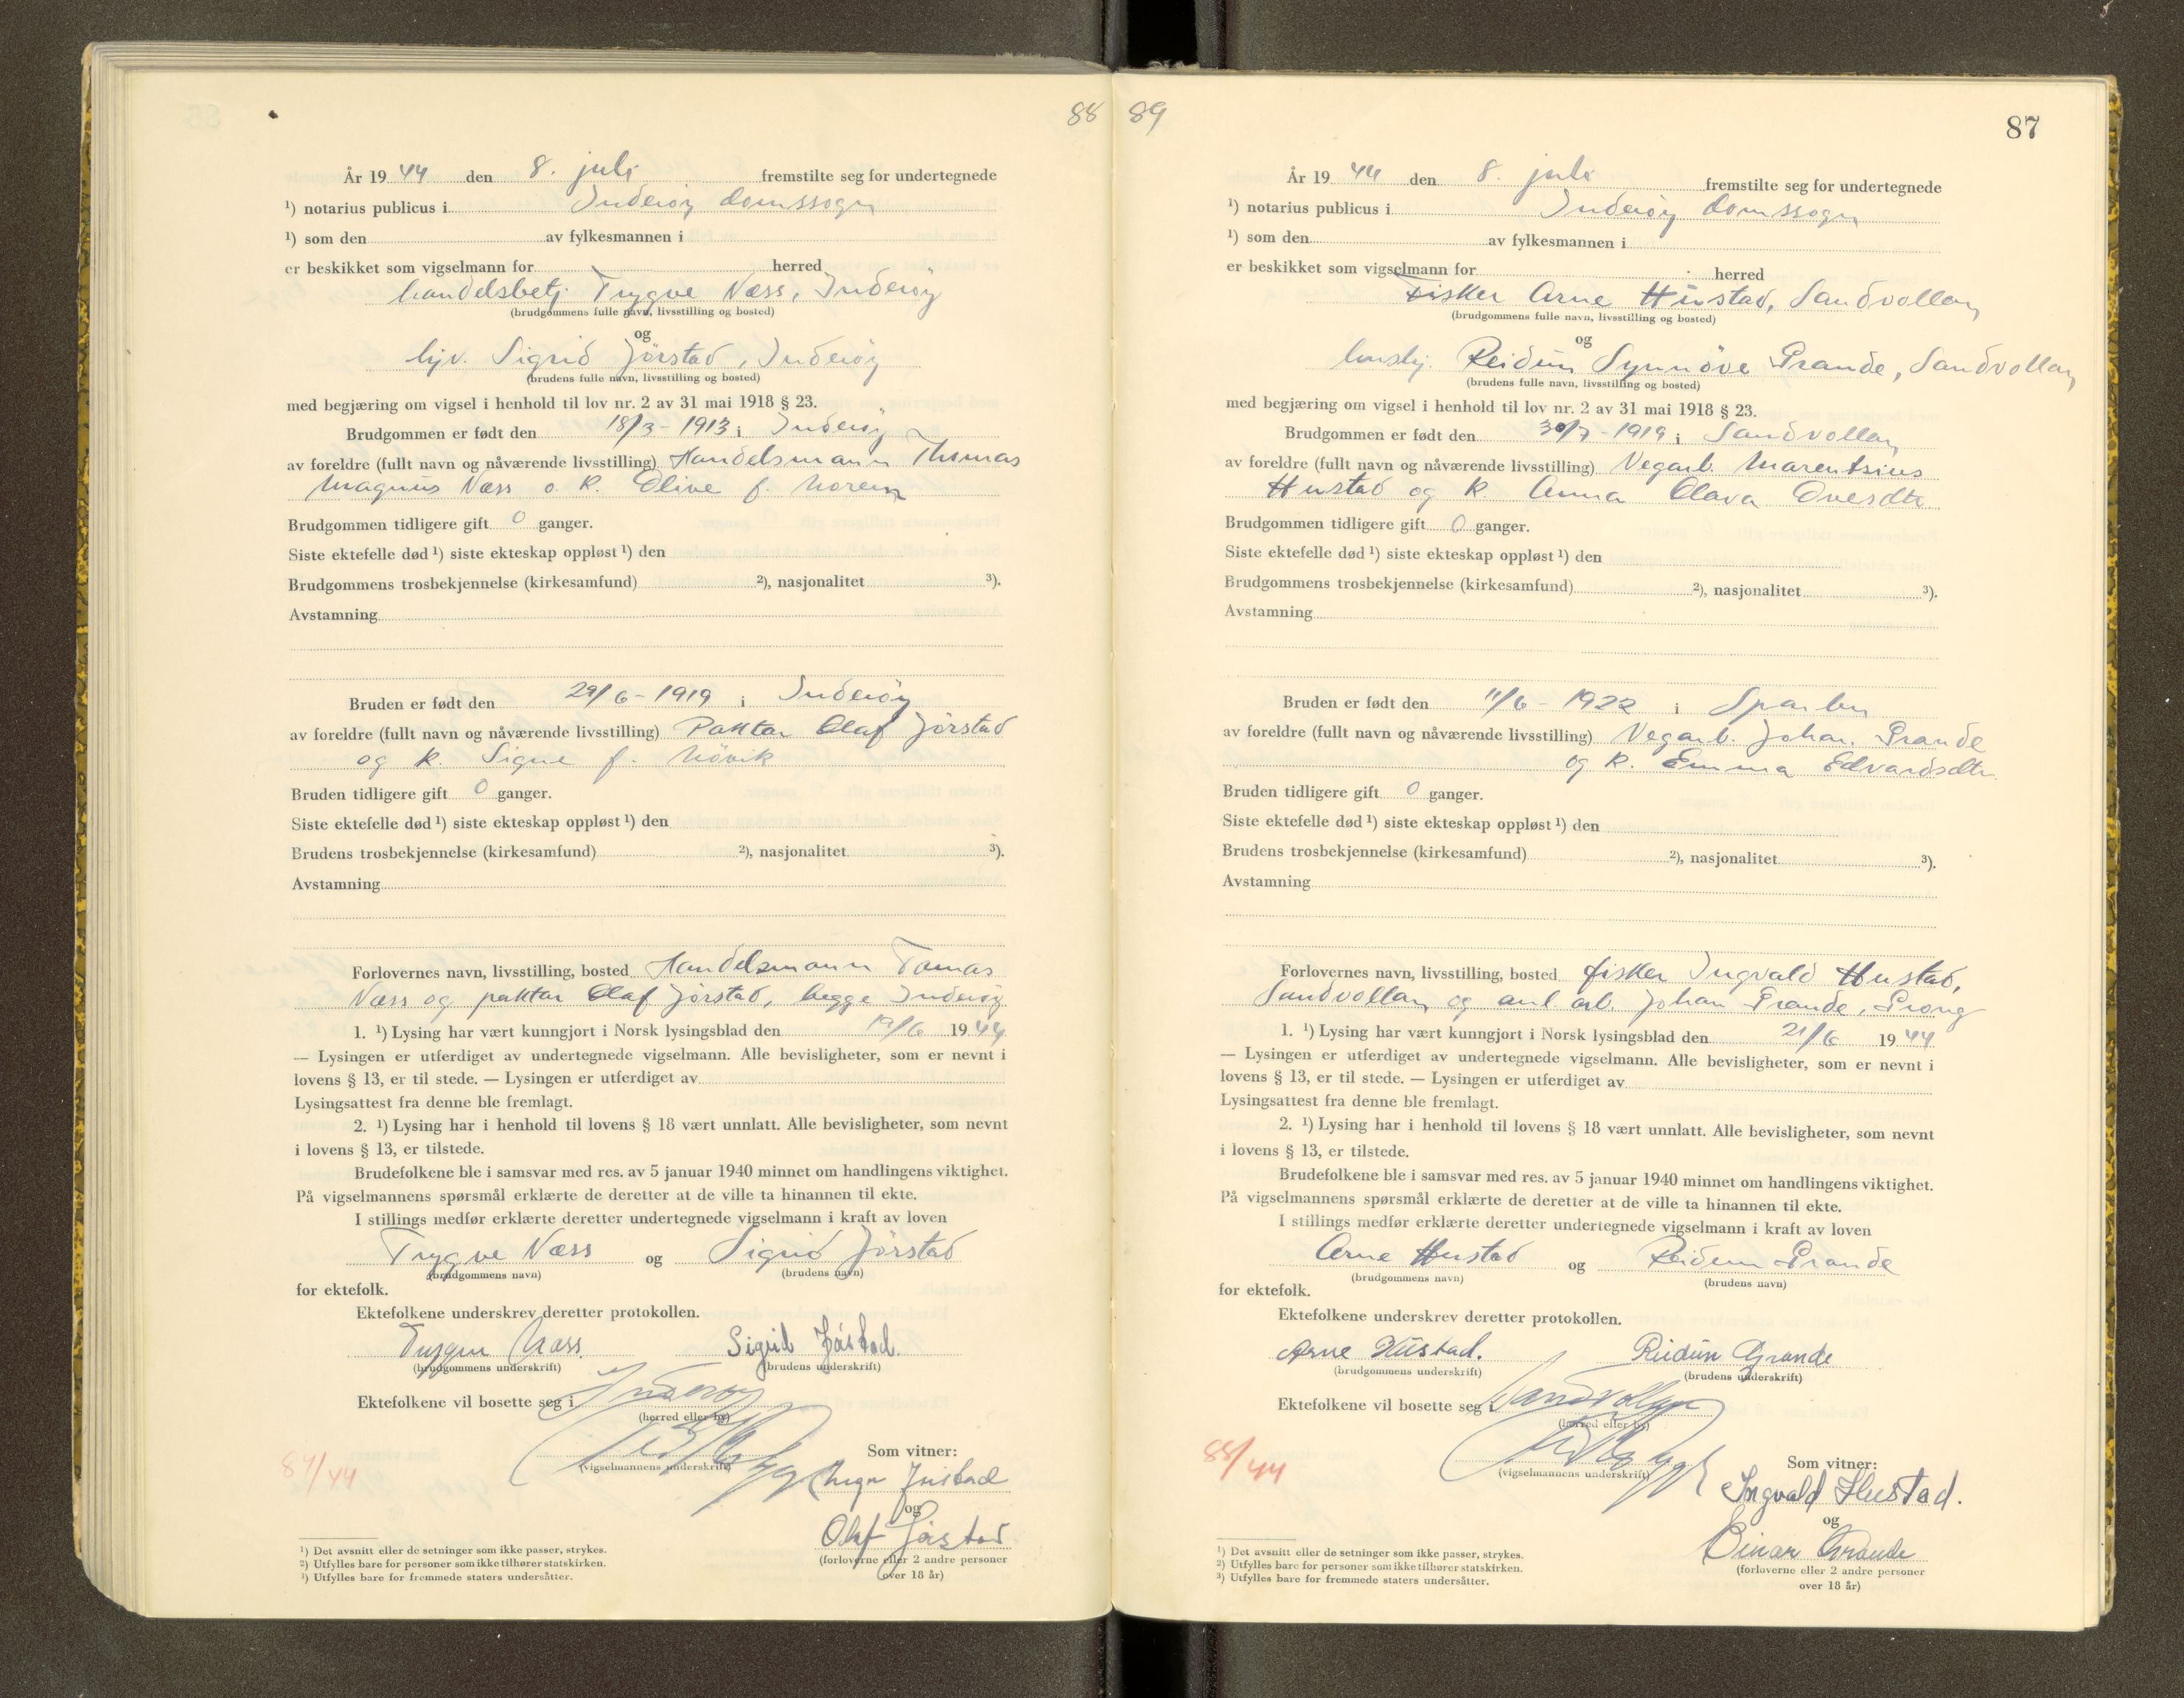 88
År 1944 den 8. juli fremstilte seg for undertegnede
¹) notarius publicus i Inderøy domssogn
¹) som den av fylkesmannen i
er beskikket som vigselmann for herred
handelsbetj. Trygve Næss, Inderøy
(brudgommens fulle navn, livsstilling og bosted)
og
hjv. Sigrid Jörstad, Inderöy
(brudens fulle navn, livsstilling og bosted)
med begjæring om vigsel i henhold til lov nr. 2 av 31 mai 1918 § 23.
Brudgommen er født den 18/3 - 1913 i Inderöy
av foreldre (fullt navn og nåværende livsstilling) Handelsmann Thomas
Magnus Næss o. k. Olive f. Moren
Brudgommen tidligere gift 0 ganger.
Siste ektefelle død ¹) siste ekteskap oppløst ¹) den
Brudgommens trosbekjennelse (kirkesamfund) ²), nasjonalitet ³).
Avstamning
Bruden er født den 29/6 - 1919 i Inderöy
av foreldre (fullt navn og nåværende livsstilling) Paktar Olaf Jörstad
og k. Signe f. Növik
Bruden tidligere gift 0 ganger.
Siste ektefelle død ¹) siste ekteskap oppløst ¹) den
Brudens trosbekjennelse (kirkesamfund) ²), nasjonalitet ³).
Avstamning
Forlovernes navn, livsstilling, bosted Handelsmann Tomas
Næss og paktar Olaf Jörstad, begge Inderöy
1. ¹) Lysing har vært kunngjort i Norsk lysingsblad den 19/6 1944
— Lysingen er utferdiget av undertegnede vigselmann. Alle bevisligheter, som er nevnt i
lovens § 13, er til stede. — Lysingen er utferdiget av
Lysingsattest fra denne ble fremlagt.
2. ¹) Lysing har i henhold til lovens § 18 vært unnlatt. Alle bevisligheter, som nevnt
i lovens § 13, er tilstede.
Brudefolkene ble i samsvar med res. av 5 januar 1940 minnet om handlingens viktighet.
På vigselmannens spørsmål erklærte de deretter at de ville ta hinannen til ekte.
I stillings medfør erklærte deretter undertegnede vigselmann i kraft av loven
Trygve Næss og Sigrid Jörstad
(brudgommens navn) (brudens navn)
for ektefolk.
Ektefolkene underskrev deretter protokollen.
Trygve Næss. Sigrid Jörstad.
(brudgommens underskrift) (brudens underskrift)
Ektefolkene vil bosette seg i Inderøy
(herred eller by)
Som vitner:
(vigselmannens underskrift)
84/44
og
Olaf Jörstad
(forloverne eller 2 andre personer
over 18 år)
¹) Det avsnitt eller de setninger som ikke passer, strykes.
²) Utfylles bare for personer som ikke tilhører statskirken.
³) Utfylles bare for fremmede staters undersåtter.
89
87
År 1944 den 8. juli fremstilte seg for undertegnede
¹) notarius publicus i Inderöy domssogn
¹) som den av fylkesmannen i
er beskikket som vigselmann for herred
Fisker Arne Hustad, Sandvollan
(brudgommens fulle navn, livsstilling og bosted)
og
hushj. Reidun Synnöve Grande, Sandvollan
(brudens fulle navn, livsstilling og bosted)
med begjæring om vigsel i henhold til lov nr. 2 av 31 mai 1918 § 23.
Brudgommen er født den 30/7 - 1919 i Sandvollan
av foreldre (fullt navn og nåværende livsstilling) Vegarb. Marentsius
Hustad og k. Anna Olava Ovesdtr
Brudgommen tidligere gift 0 ganger.
Siste ektefelle død ¹) siste ekteskap oppløst ¹) den
Brudgommens trosbekjennelse (kirkesamfund) ²), nasjonalitet ³).
Avstamning
Bruden er født den 11/6 - 1922 i Sparbu
av foreldre (fullt navn og nåværende livsstilling) Vegarb. Johan Grande
og k. Emma Edvardsdtr.
Bruden tidligere gift 0 ganger.
Siste ektefelle død ¹) siste ekteskap oppløst ¹) den
Brudens trosbekjennelse (kirkesamfund) ²), nasjonalitet ³).
Avstamning
Forlovernes navn, livsstilling, bosted fisker Ingvald Hustad,
Sandvollan og anl. arb. Johan Grande, Grong
1. ¹) Lysing har vært kunngjort i Norsk lysingsblad den 21/6 1944
— Lysingen er utferdiget av undertegnede vigselmann. Alle bevisligheter, som er nevnt i
lovens § 13, er til stede. — Lysingen er utferdiget av
Lysingsattest fra denne ble fremlagt.
2. ¹) Lysing har i henhold til lovens § 18 vært unnlatt. Alle bevisligheter, som nevnt
i lovens § 13, er tilstede.
Brudefolkene ble i samsvar med res. av 5 januar 1940 minnet om handlingens viktighet.
På vigselmannens spørsmål erklærte de deretter at de ville ta hinannen til ekte.
I stillings medfør erklærte deretter undertegnede vigselmann i kraft av loven
Arne Hustad og Reidun Grande
(brudgommens navn) (brudens navn)
for ektefolk.
Ektefolkene underskrev deretter protokollen.
Arne Hustad. Reidun Grande
(brudgommens underskrift) (brudens underskrift)
Ektefolkene vil bosette seg Sandvollan
(herred eller by)
Som vitner:
(vigselmannens underskrift)
88/44
Ingvald Hustad.
og
Einar Grande
(forloverne eller 2 andre personer
over 18 år)
¹) Det avsnitt eller de setninger som ikke passer, strykes.
²) Utfylles bare for personer som ikke tilhører statskirken.
³) Utfylles bare for fremmede staters undersåtter.